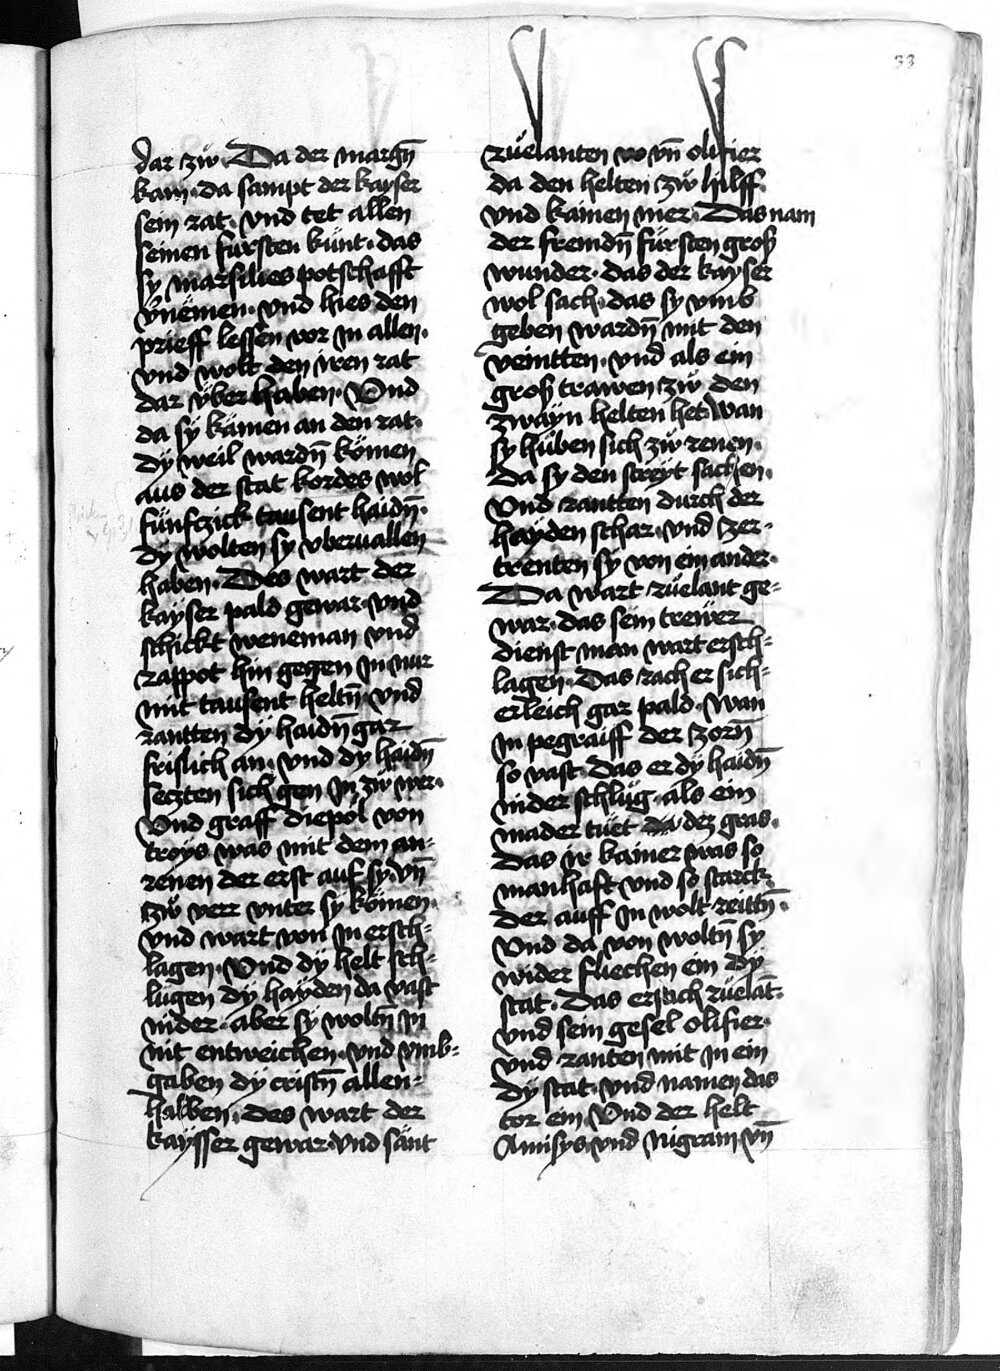 33
dar zw · Da der margñ
kam · da sampt der kayser
sein rat · vnd tet allen
seinen fürsten künt · das
sy marsilies potschafft
vnemen · vnd hies den
prieff lessen vor in allen ·
vnd wolt den iren rat
dar vber haben · Vnd
da sy kamen an den rat ·
dy weil wardñ komen
aus der stat kordes wol
fünfczick tausent haidñ ·
dy wolten sy vberuallen
haben · Des wart der
kayser pald gewar · vnd
schickt weneman vnd
rappot hin gegen in nur
mit tausent heltñ · vnd
rantten dy haidñ gar
frislich an · vnd dy haidñ
seczten sich gen in zw wer ·
Vnd graff diepol von
troys was mit dem an-
renen der erst auf sy · vñ
zw verr vnter sy komen ·
vnd wart von in ersch-
lagen · Vnd dy helt sch-
lugen dy hayden da vast
nider · aber sy woltñ in
nit entweichen · vnd vmb-
gaben dy cristñ allen-
halben · des wart der
kaysser gewar · vnd sant
rüelanten vo vñ olifier
da den helten zw hilff ·
vnd kamen mer · Das nam
der fremdñ fürsten groß
wunder · das der kayser
wol sach · das sy vmb
geben wardñ mit den
veintten · vnd als ein
groß trawen zw den
zwayn helten het · wan
sy huben sich zw renen ·
da sy den streyt sachen ·
Vnd rantten durch der
hayden schar · vnd zer-
trenten sy von ein ander ·
Da wart rüelant ge-
war · das sein trewer
dienst man wart ersch-
lagen · Das rach er sich-
erleich gar pald · wan
in pegraiff der zorñ
so vast · das er dy haidñ
nider schlug · als ein
mader tuet dez gras ·
Das ir kainer was so
manhaft · vnd so starck
der auff in wolt reittñ ·
Vnd da von woltñ sy
wider fliechen ein dy
stat · Das ersach rüelāt ·
vnd sein gesel olifier ·
vnd ranten mit in ein
dy stat · vnd namen das
tor ein · Vnd der helt
Amisys · vnd nigram · vñ